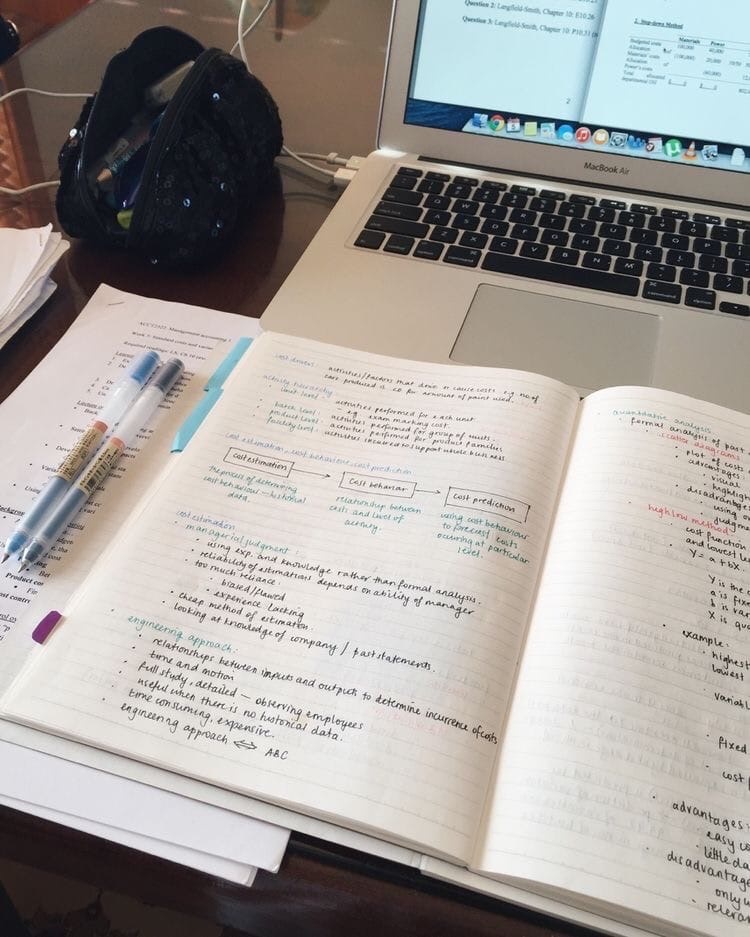 Question 2: Langfield-Smith, Chapter 10: E10.26
Question 3: Langfield-Smith, Chapter 10: P10.31
2
2. Step-down Method
Materials Power
Budgeted costs 100,000 40,000
Allocation of
Materials' costs (100,000) 20,000
Allocation of
Power's costs (60,000)
Total allocated
departmental OH
MacBook Air
ACCT2522: Management accounting 1
Week 5: Standard costs and
Required readings: LS, Ch 10
cost drivers: activities/factors that drive or cause costs e.g. no. of
cars produced is CD for amount of paint used.
activity hierarchy
unit level: activities performed for each unit
- e.g. exam marking cost.
batch level: activities performed for group of units.
product level: activities performed for product families
facility level: activities incurred to support whole business
cost estimation, cost behaviour, cost prediction
cost estimation
cost behavior
cost prediction
the process of determining
cost behaviour — historical
data.
relationship between
costs and level of
activity.
using cost behaviour
to forecast costs
occuring at particular
level.
cost estimation
• managerial judgment:
• using exp. and knowledge rather than formal analysis.
• reliability of estimations depends on ability of manager
• too much reliance:
• biased/flawed
• experience lacking
• cheap method of estimation
• looking at knowledge of company / past statements.
• engineering approach:
• relationships between inputs and outputs to determine incurrence of costs
• time and motion
• full study, detailed — observing employees
• useful when there is no historical data.
• time consuming, expensive.
• engineering approach ⇔ ABC
• quantitative analysis
• formal analysis of past
• scatter diagrams
• plot of costs
• advantages
• visual
• highlight
• disadvantages
• using
judgm
high low method:
cost function
and lowest
• Y = a + bX
Y is the
a is fixed
b is vari
X is qua
• example:
• highest
lowest
• variabl
• fixed
• cost
• advantages:
• easy
• little da
• disadvantage
• only
• relevan